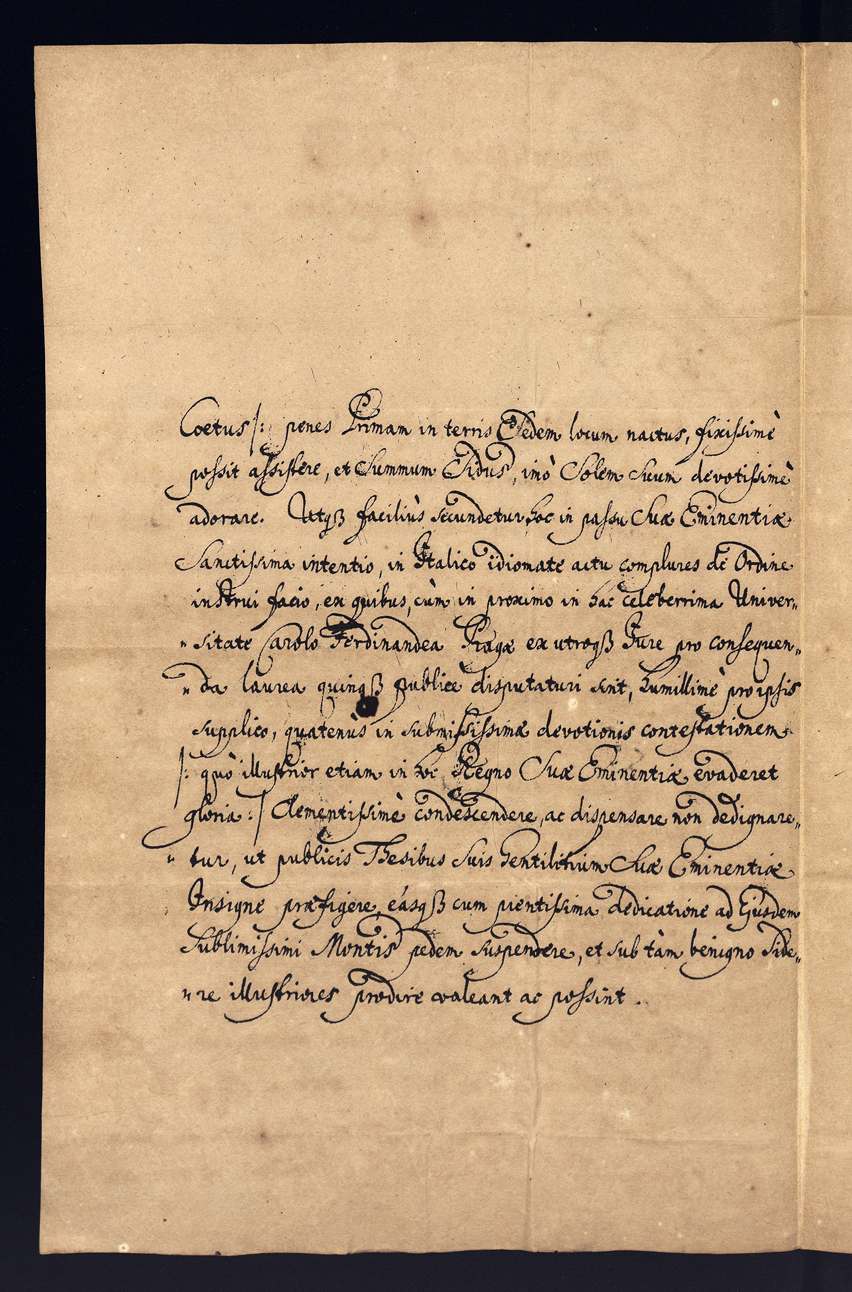 Coetus /: penes Primam in terris Sedem locum nactus, fixissimè
possit assistere, et Summum Sidus, imò Solem Suum devotissimè
adorare. Utqß faciliùs secundetur hoc in passu Suæ Eminentiæ
Sanctissima intentio, in Italico idiomate actu complures de Ordine
instrui facio, ex quibus, cùm in proximo in hac celeberrima Univer„
„sitate Carolo Ferdinandea Pragæ ex utroqß Jure pro consequen„
„da laurea quinqß publicè disputaturi sint, humillimè pro ipsis
supplico, quatenùs in submississimæ devotionis contestationem
/: quò illustrior etiam in hoc Regno Suæ Eminentiæ evaderet
gloria :/ Clementissimè condescendere, ac dispensare non dedignare„
„tur, ut publicis Thesibus suis Gentilitium Suæ Eminentiæ
Insigne præfigere, eásqß cum pientissima dedicatione ad Ejusdem
Sublimissimi Montis pedem suspendere, et sub tàm benigno Side„
„re illustriores prodire valeant ac possint.